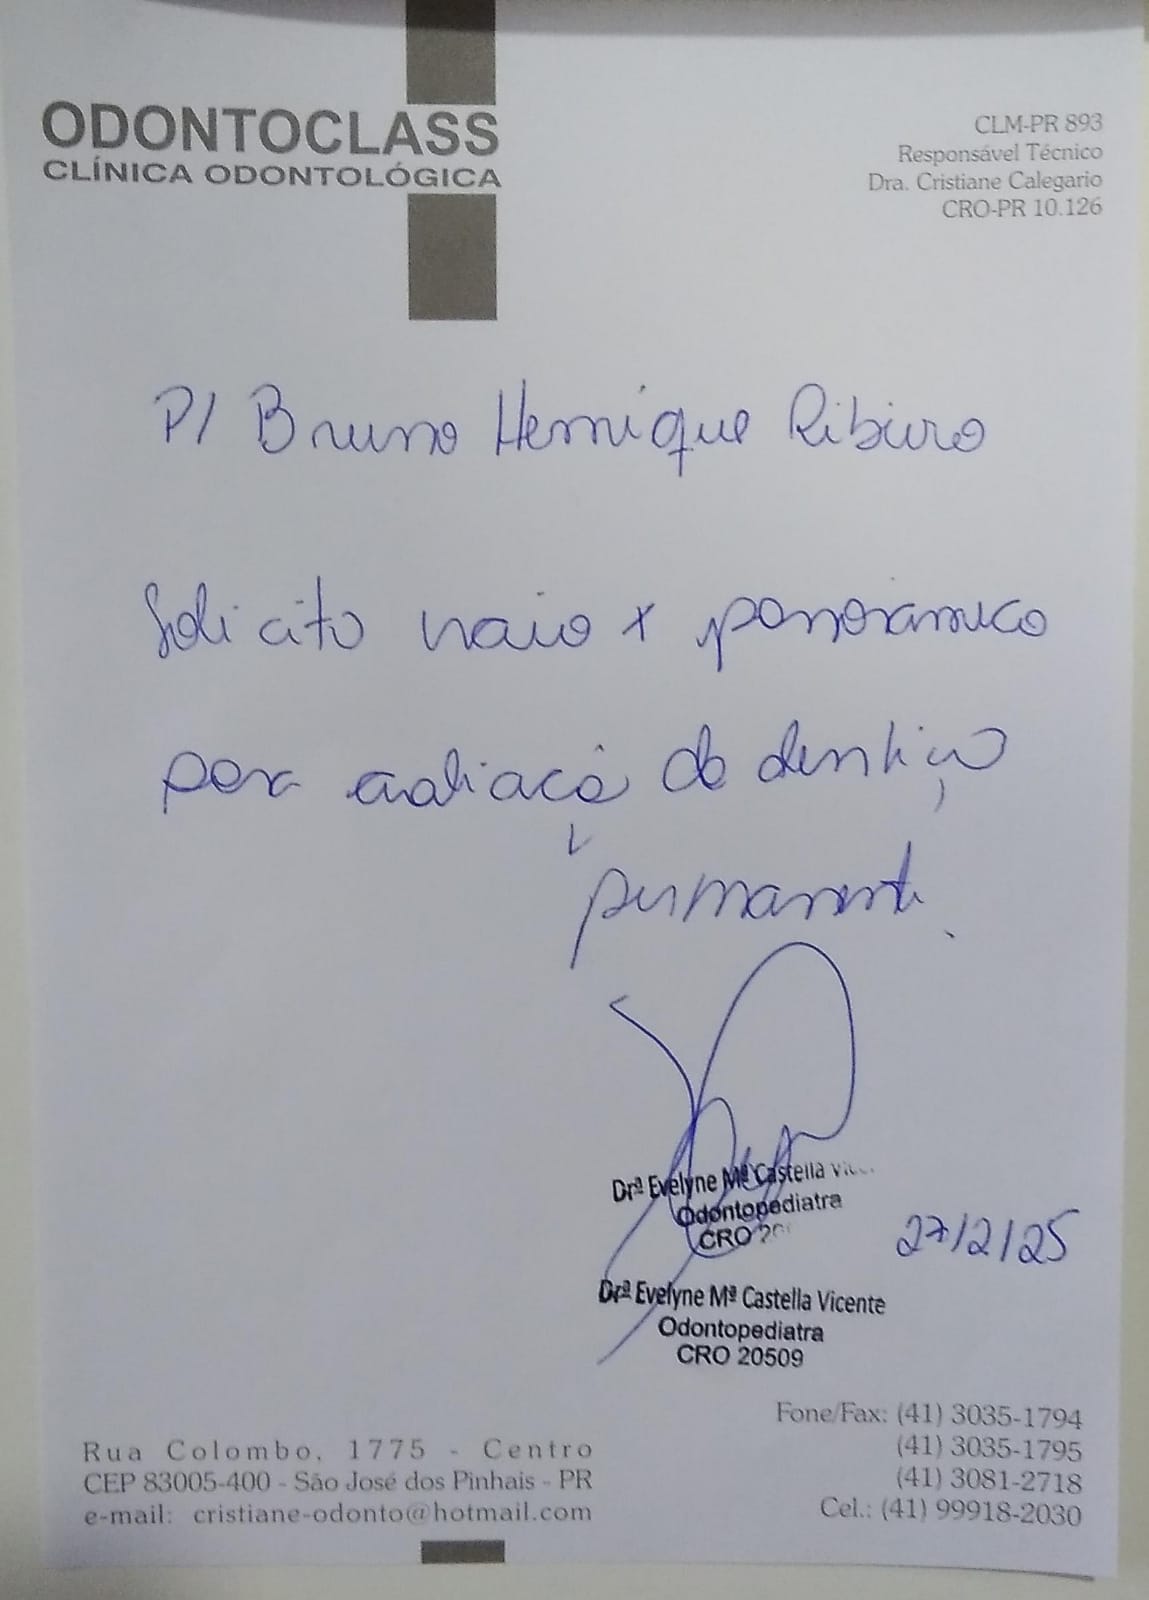 ODONTOCLASS
CLÍNICA ODONTOLÓGICA
CLM-PR 893
Responsável Técnico
Dra. Cristiane Calegario
CRO-PR 10.126
P/ Bruno Henrique Ribeiro
Solicito raio x panorâmico
para avaliação da dentição
permanente.
Drª Evelyne Mª Castella
Odontopediatra
CRO
27/2/25
Drª Evelyne Mª Castella Vicente
Odontopediatra
CRO 20509
Rua Colombo, 1775 - Centro
CEP 83005-400 - São José dos Pinhais - PR
e-mail: cristiane-odonto@hotmail.com
Fone/Fax: (41) 3035-1794
(41) 3035-1795
(41) 3081-2718
Cel.: (41) 99918-2030